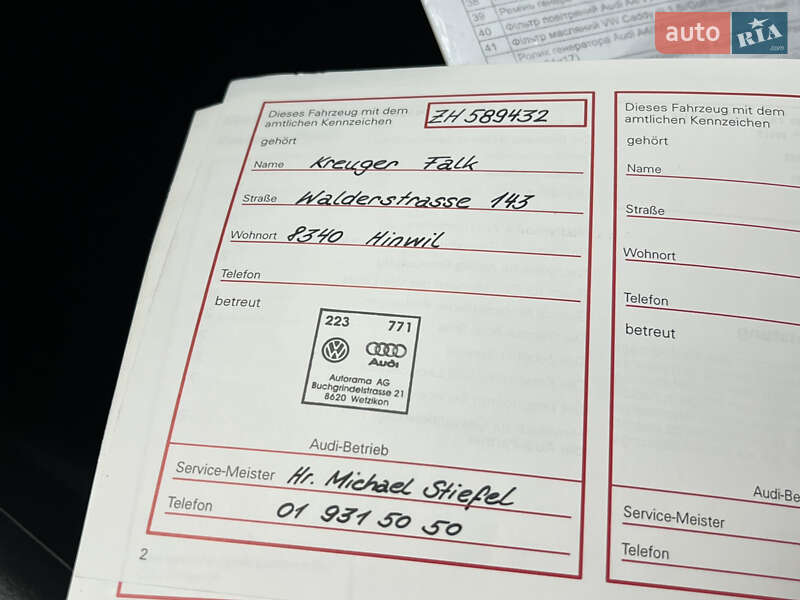 39 Ремінь генератора Audi A4
40 Фільтр повітряний Audi A4
41 Фільтр масляний VW Caddy
Ролик генератора Audi A4
auto RIA .com
Dieses Fahrzeug mit dem
amtlichen Kennzeichen ZH 589432
gehört
Name Kreuger Falk
Straße Walderstrasse 143
Wohnort 8340 Hinwil
Telefon
betreut
223 771
Audi
Autorama AG
Buchgrindelstrasse 21
8620 Wetzikon
Audi-Betrieb
Service-Meister Hr. Michael Stiefel
Telefon 01 931 50 50
2
Dieses Fahrzeug mit dem
amtlichen Kennzeichen
gehört
Name
Straße
Wohnort
Telefon
betreut
Audi-Be
Service-Meister
Telefon